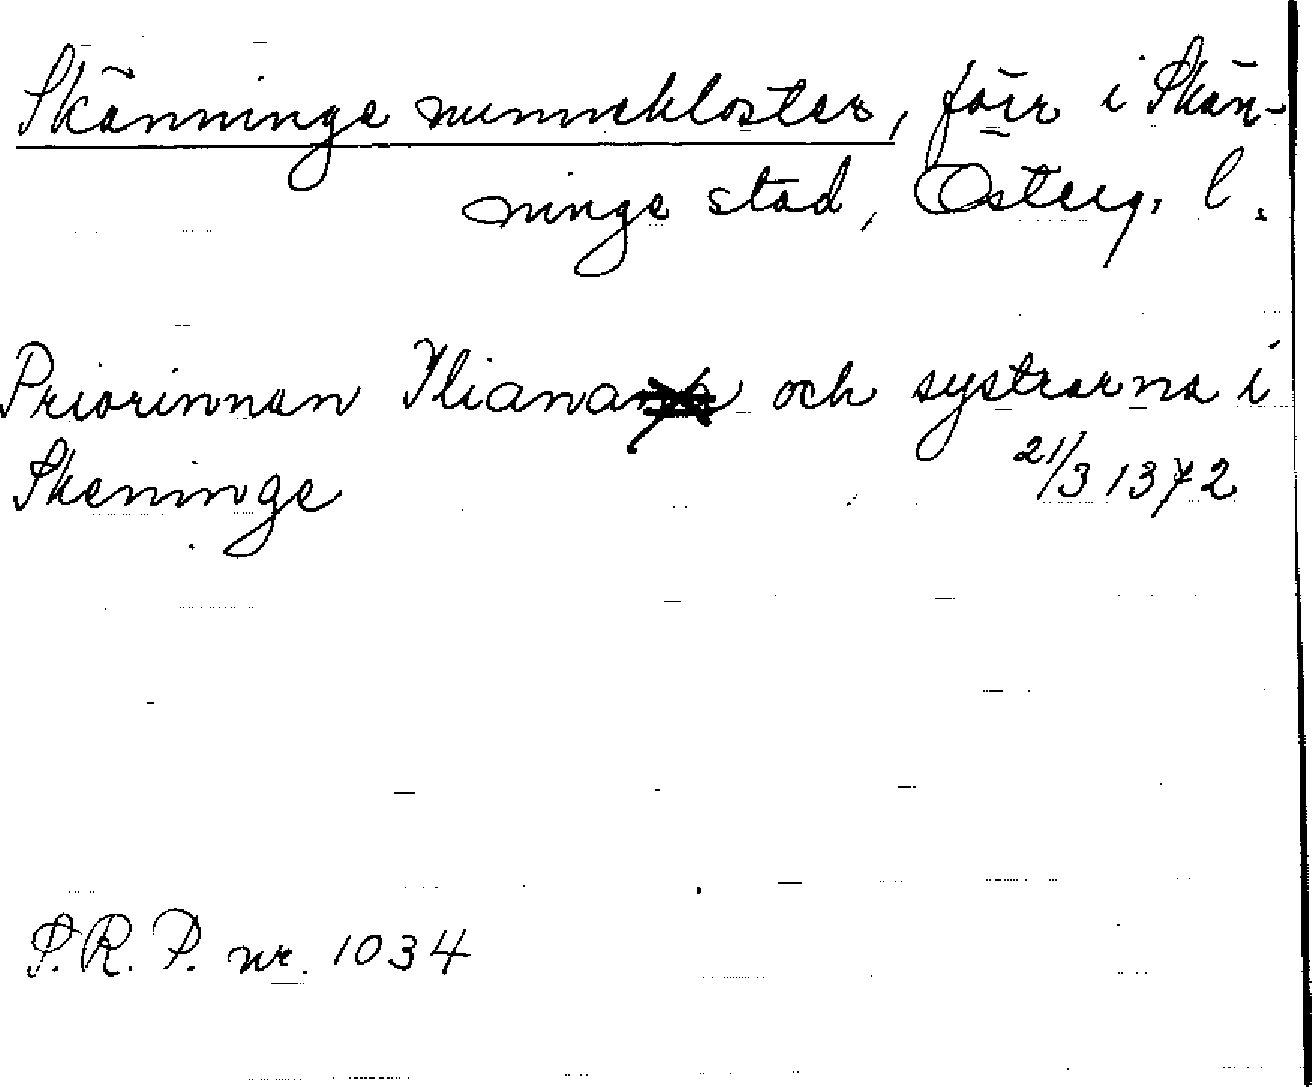 Skänninge nunnekloster, förr i Skän-
ninge stad, Österg. l.
Priorinnan Iliana och systrarna i
Skeninge 21/3 1372
S.R.P. nr. 1034